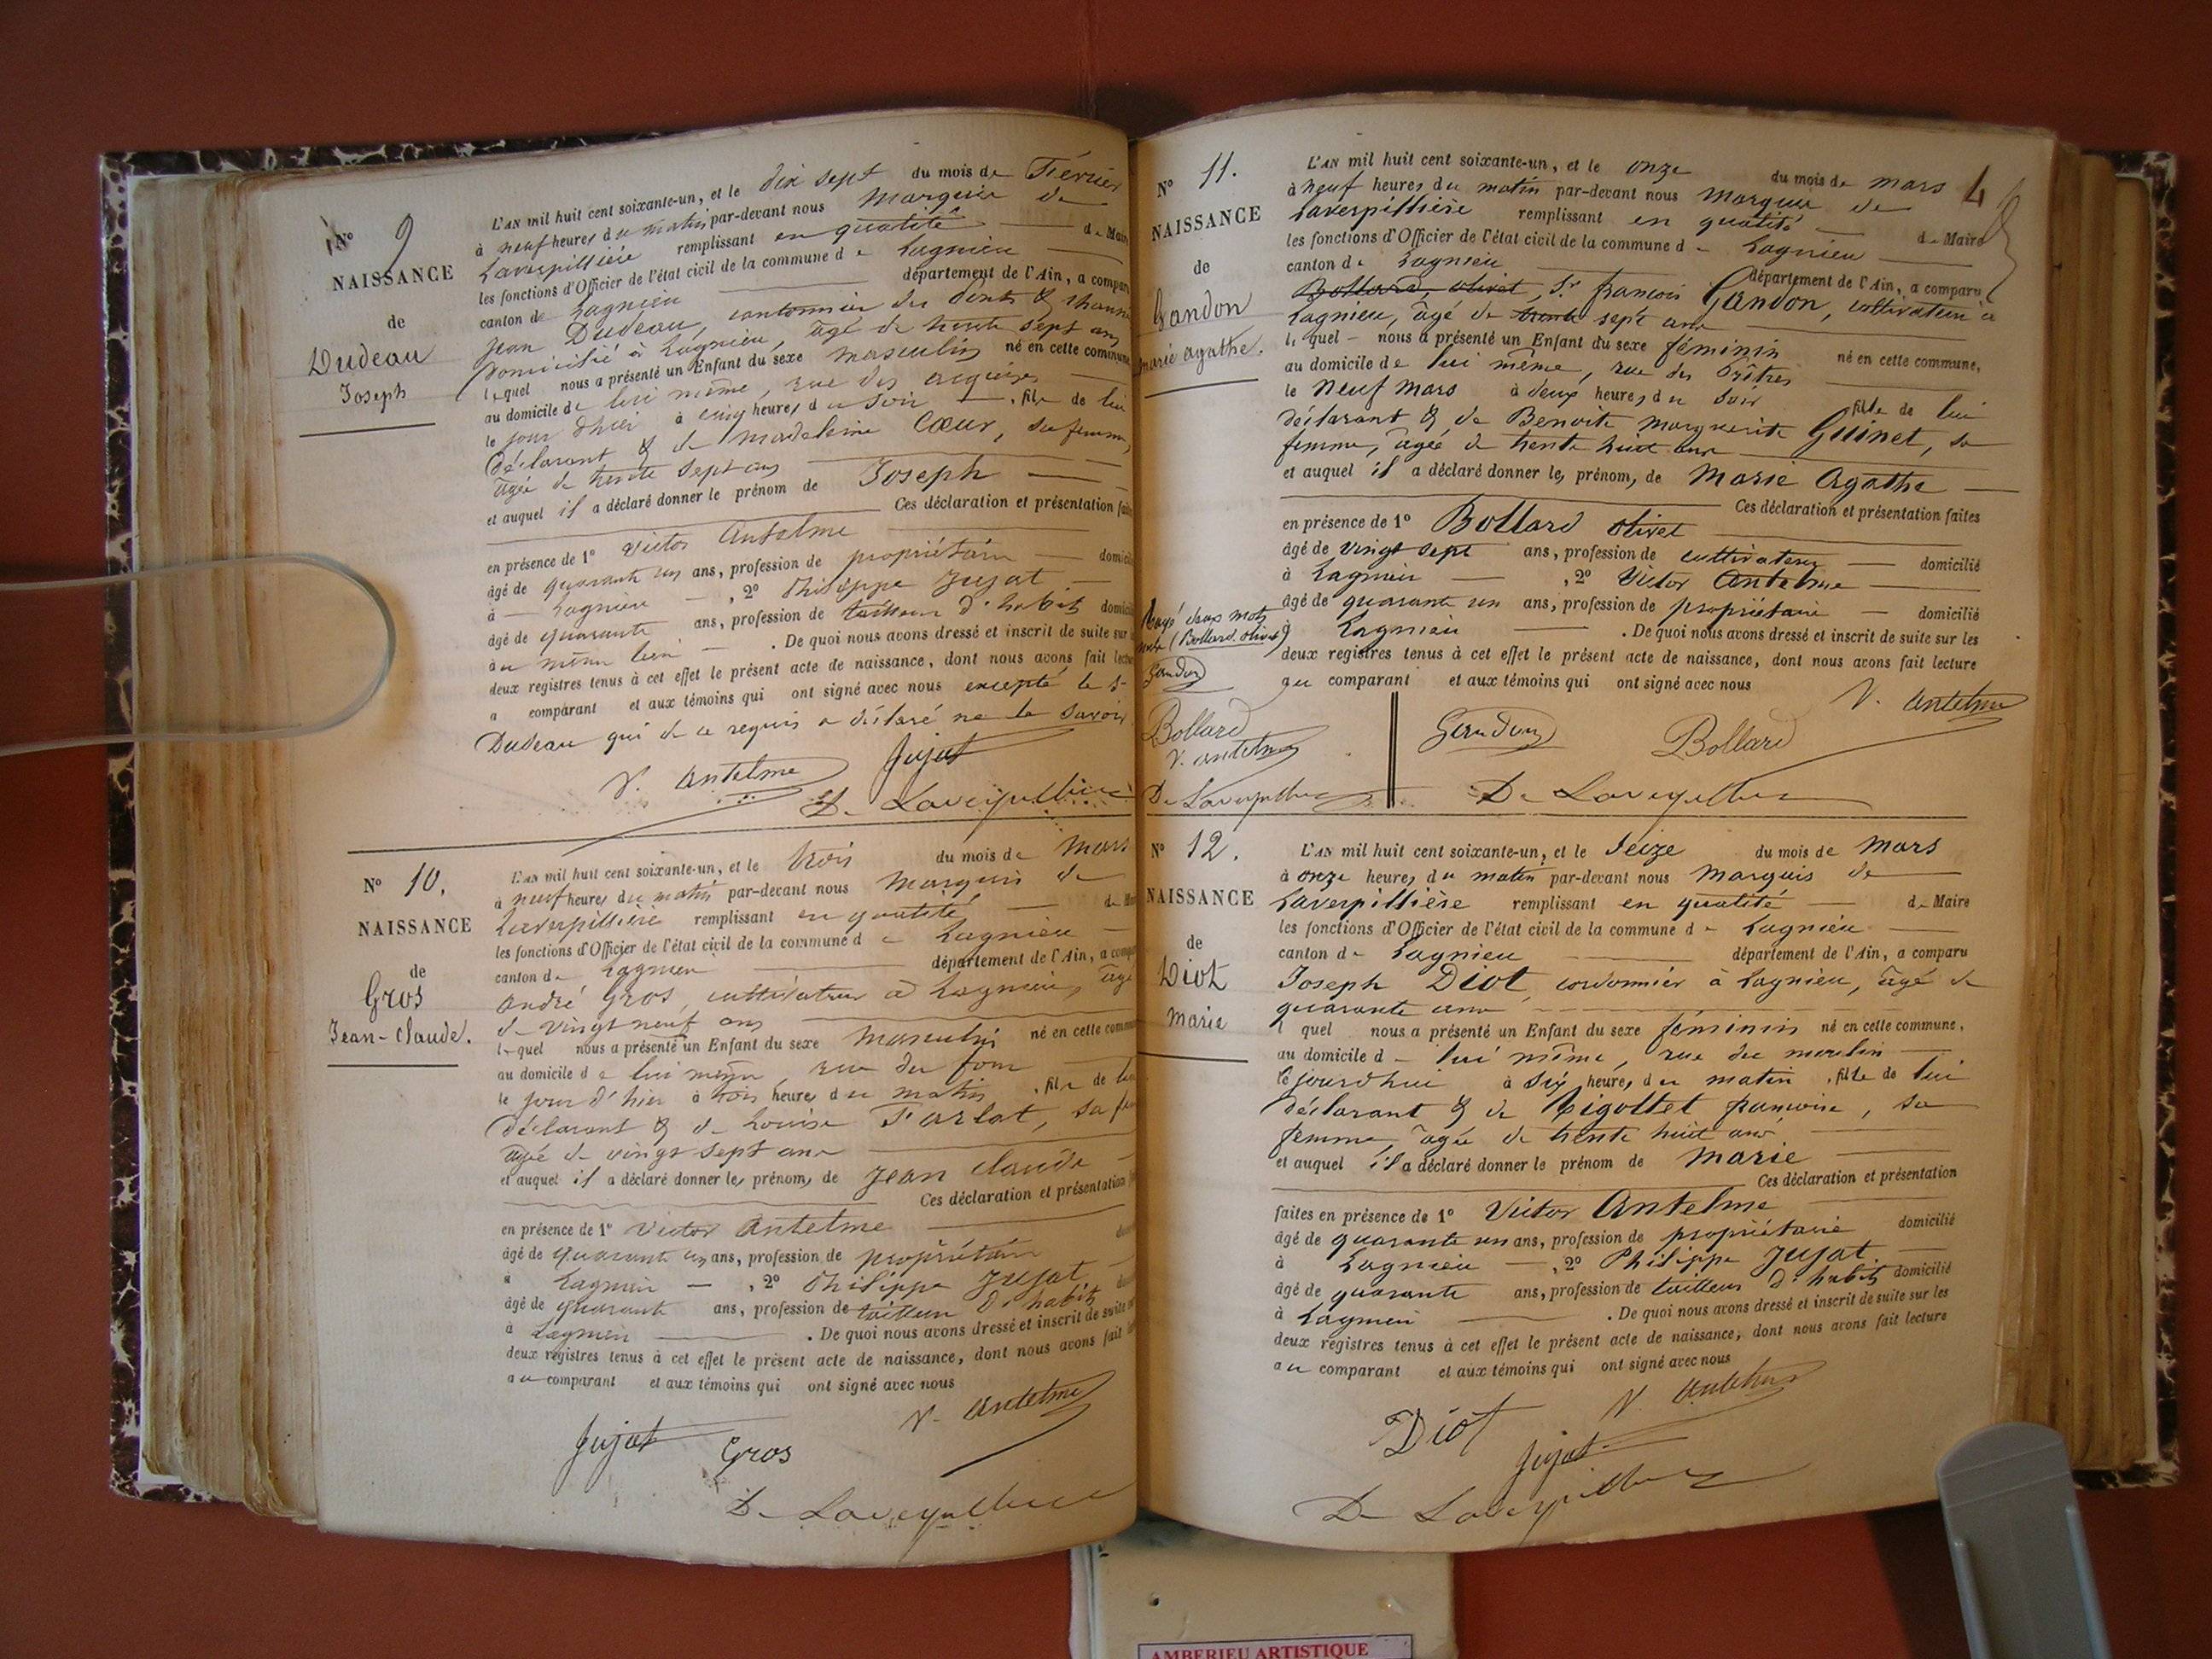 N° 9
NAISSANCE
de
Dudeau
Joseph
L'AN mil huit cent soixante-un, et le dix sept du mois de Février
à neuf heures du matin par-devant nous Marquis de
Laverpillière remplissant en qualité de Maire
les fonctions d'Officier de l'état civil de la commune de Lagnieu
canton de Lagnieu département de l'Ain, a comparu
Jean Dudeau, cantonnier des Ponts &
domicilié à Lagnieu, âgé de trente sept ans
lequel nous a présenté un Enfant du sexe masculin né en cette commune
au domicile de lui même, rue des
le jour d'hier à cinq heures du soir, fils de lui
déclarant & de Madeleine Cœur, sa femme,
âgée de trente sept ans
et auquel il a déclaré donner le prénom de Joseph
Ces déclaration et présentation faites
en présence de 1° Victor Antelme
âgé de quarante un ans, profession de propriétaire domicilié
à Lagnieu, 2° Philippe Jujat
âgé de quarante ans, profession de tailleur d'habits domicilié
au même lieu. De quoi nous avons dressé et inscrit de suite sur
deux registres tenus à cet effet le présent acte de naissance, dont nous avons fait lecture
a comparant et aux témoins qui ont signé avec nous excepté le Sr
Dudeau qui de ce requis a déclaré ne le savoir
V. Antelme Jujat
De Laverpilliere
N° 10.
NAISSANCE
de
Gros
Jean-Claude.
L'AN mil huit cent soixante-un, et le trois du mois de Mars
à neuf heures du matin par-devant nous Marquis de
Laverpillière remplissant en qualité de Maire
les fonctions d'Officier de l'état civil de la commune de Lagnieu
canton de Lagnieu département de l'Ain, a comparu
André Gros, cultivateur à Lagnieu, âgé
de vingt neuf ans
lequel nous a présenté un Enfant du sexe masculin né en cette commune
au domicile de lui même, rue du four
le jour d'hier à trois heures du matin, fils de lui
déclarant & de Louise Parlat, sa femme
âgée de vingt sept ans
et auquel il a déclaré donner les prénoms de Jean Claude
Ces déclaration et présentation
en présence de 1° Victor Antelme
âgé de quarante un ans, profession de propriétaire
à Lagnieu, 2° Philippe Jujat
âgé de quarante ans, profession de tailleur d'habits
à Lagnieu. De quoi nous avons dressé et inscrit de suite sur
deux registres tenus à cet effet le présent acte de naissance, dont nous avons fait
au comparant et aux témoins qui ont signé avec nous
V. Antelme
Jujat Gros
De Laverpilliere
4
N° 11.
NAISSANCE
de
Gandon
Marie Agathe.
L'AN mil huit cent soixante-un, et le onze du mois de mars
à neuf heures du matin par-devant nous Marquis de
Laverpillière remplissant en qualité de Maire
les fonctions d'Officier de l'état civil de la commune de Lagnieu
canton de Lagnieu département de l'Ain, a comparu
Bollard, olivet, Sr françois Gandon, cultivateur à
Lagnieu, âgé de trente sept ans
lequel nous a présenté un Enfant du sexe féminin né en cette commune,
au domicile de lui même, rue des Prêtres
le neuf mars à deux heures du soir fille de lui
déclarant & de Benoite Marguerite Guinet, sa
femme, âgée de trente huit ans
et auquel il a déclaré donner les prénoms de Marie Agathe
Ces déclaration et présentation faites
en présence de 1° Bollard olivet
âgé de vingt sept ans, profession de cultivateur domicilié
à Lagnieu, 2° Victor Antelme
âgé de quarante un ans, profession de propriétaire domicilié
à Lagnieu. De quoi nous avons dressé et inscrit de suite sur les
deux registres tenus à cet effet le présent acte de naissance, dont nous avons fait lecture
au comparant et aux témoins qui ont signé avec nous
V. Antelme
Gandon Bollard
De Laverpilliere
Rayé deux mots
nuls (Bollard, olivet)
Gandon
Bollard
V. Antelme
De Laverpilliere
N° 12.
NAISSANCE
de
Diot
Marie
L'AN mil huit cent soixante-un, et le seize du mois de Mars
à onze heures du matin par-devant nous Marquis de
Laverpillière remplissant en qualité de Maire
les fonctions d'Officier de l'état civil de la commune de Lagnieu
canton de Lagnieu département de l'Ain, a comparu
Joseph Diot, cordonnier à Lagnieu, âgé de
quarante ans
lequel nous a présenté un Enfant du sexe féminin né en cette commune,
au domicile de lui même, rue du moulin
le jourd'hui à six heures du matin, fille de lui
déclarant & de Rigottet françoise, sa
femme, âgée de trente huit ans
et auquel il a déclaré donner le prénom de Marie
Ces déclaration et présentation
faites en présence de 1° Victor Antelme
âgé de quarante un ans, profession de propriétaire domicilié
à Lagnieu, 2° Philippe Jujat.
âgé de quarante ans, profession de tailleur d'habits domicilié
à Lagnieu. De quoi nous avons dressé et inscrit de suite sur les
deux registres tenus à cet effet le présent acte de naissance, dont nous avons fait lecture
au comparant et aux témoins qui ont signé avec nous
V. Antelme
Diot
Jujat
De Laverpilliere
AMBERIEU ARTISTIQUE